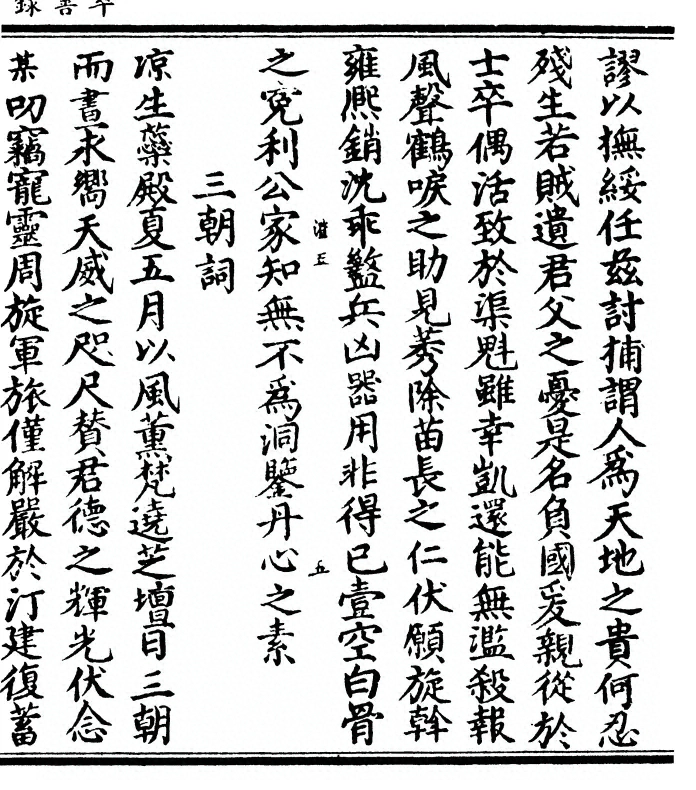 謬以撫綏任茲討捕謂人爲天地之貴何忍
殘生若賊遺君父之憂是名負國爰親從於
士卒偶活致於渠魁雖幸凱還能無濫殺報
風聲鶴唳之助見莠除苗長之仁伏願旋斡
雍熙銷沈乖盭兵凶器用非得已壹空白骨
之寃利公家知無不爲洞鑒丹心之素
三朝詞
凉生蘂殿夏五月以風薰梵遶芝壇日三朝
而晝永嚮天威之咫尺賛君德之輝光伏念
某叨竊寵靈周旋軍旅僅解嚴於汀建復蓄